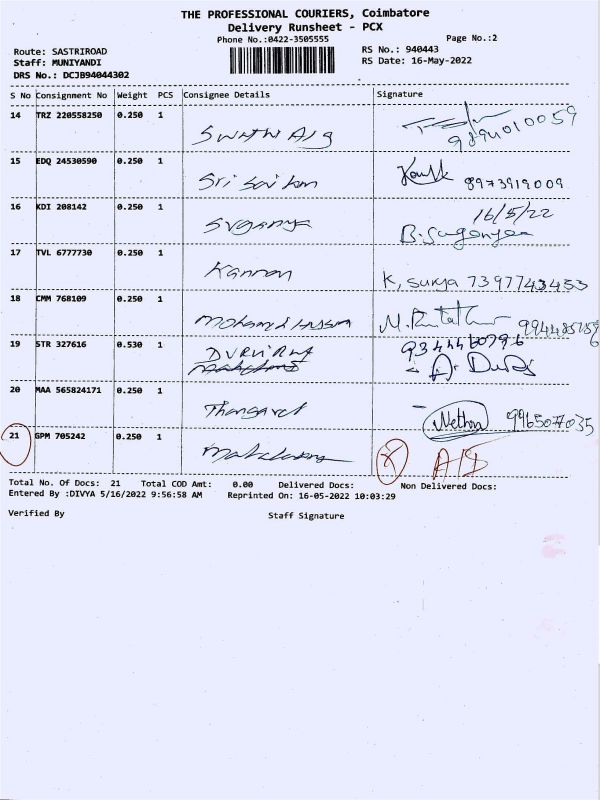 THE PROFESSIONAL COURIERS, Coimbatore
Delivery Runsheet - PCX
Phone No.:0422-3505555
Page No.:2
Route: SASTRIROAD
RS No.: 940443
Staff: MUNIYANDI
RS Date: 16-May-2022
DRS No.: DCJB94044302
S No Consignment No Weight PCS Consignee Details Signature
14 TRZ 220558250 0.250 1
15 EDQ 24530590 0.250 1 Sri Sai ram 8973919009
16 KDI 208142 0.250 1 Suganya 16/5/22
B. Suganya
17 TVL 6777730 0.250 1 Kannan K, Surya 7397743453
18 CMM 768109 0.250 1
19 STR 327616 0.530 1
20 MAA 565824171 0.250 1 Thangavel 9965077035
21 GPM 705242 0.250 1
Total No. Of Docs: 21 Total COD Amt: 0.00 Delivered Docs: Non Delivered Docs:
Entered By :DIVYA 5/16/2022 9:56:58 AM Reprinted On: 16-05-2022 10:03:29
Verified By Staff Signature